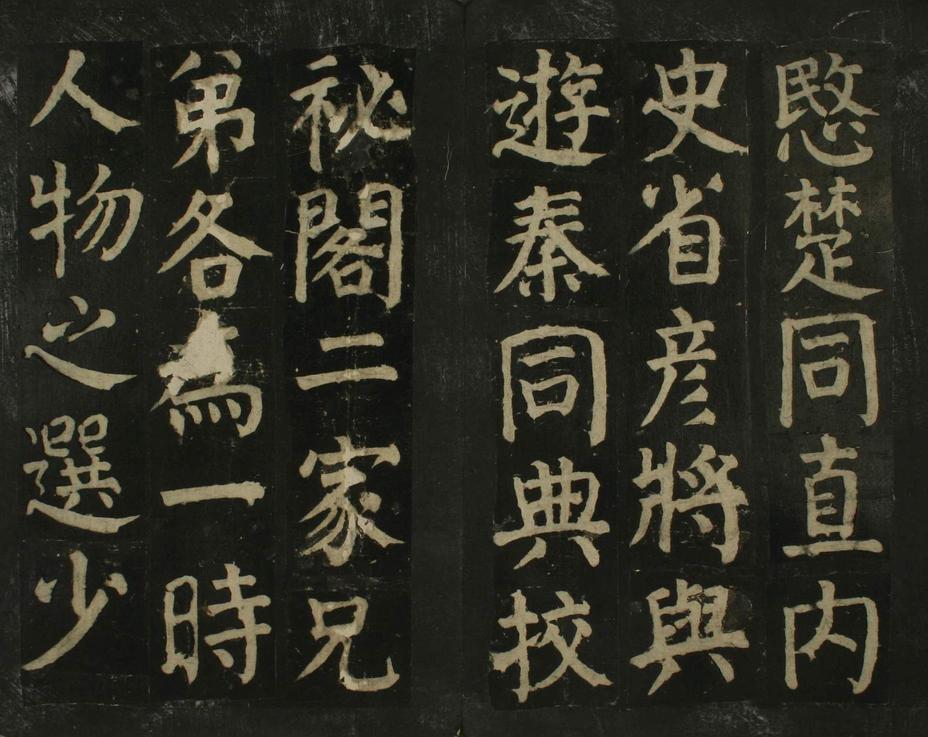 愍楚同直內
史省彦將與
遊秦同典校
祕閣二家兄
弟各為一時
人物之選少